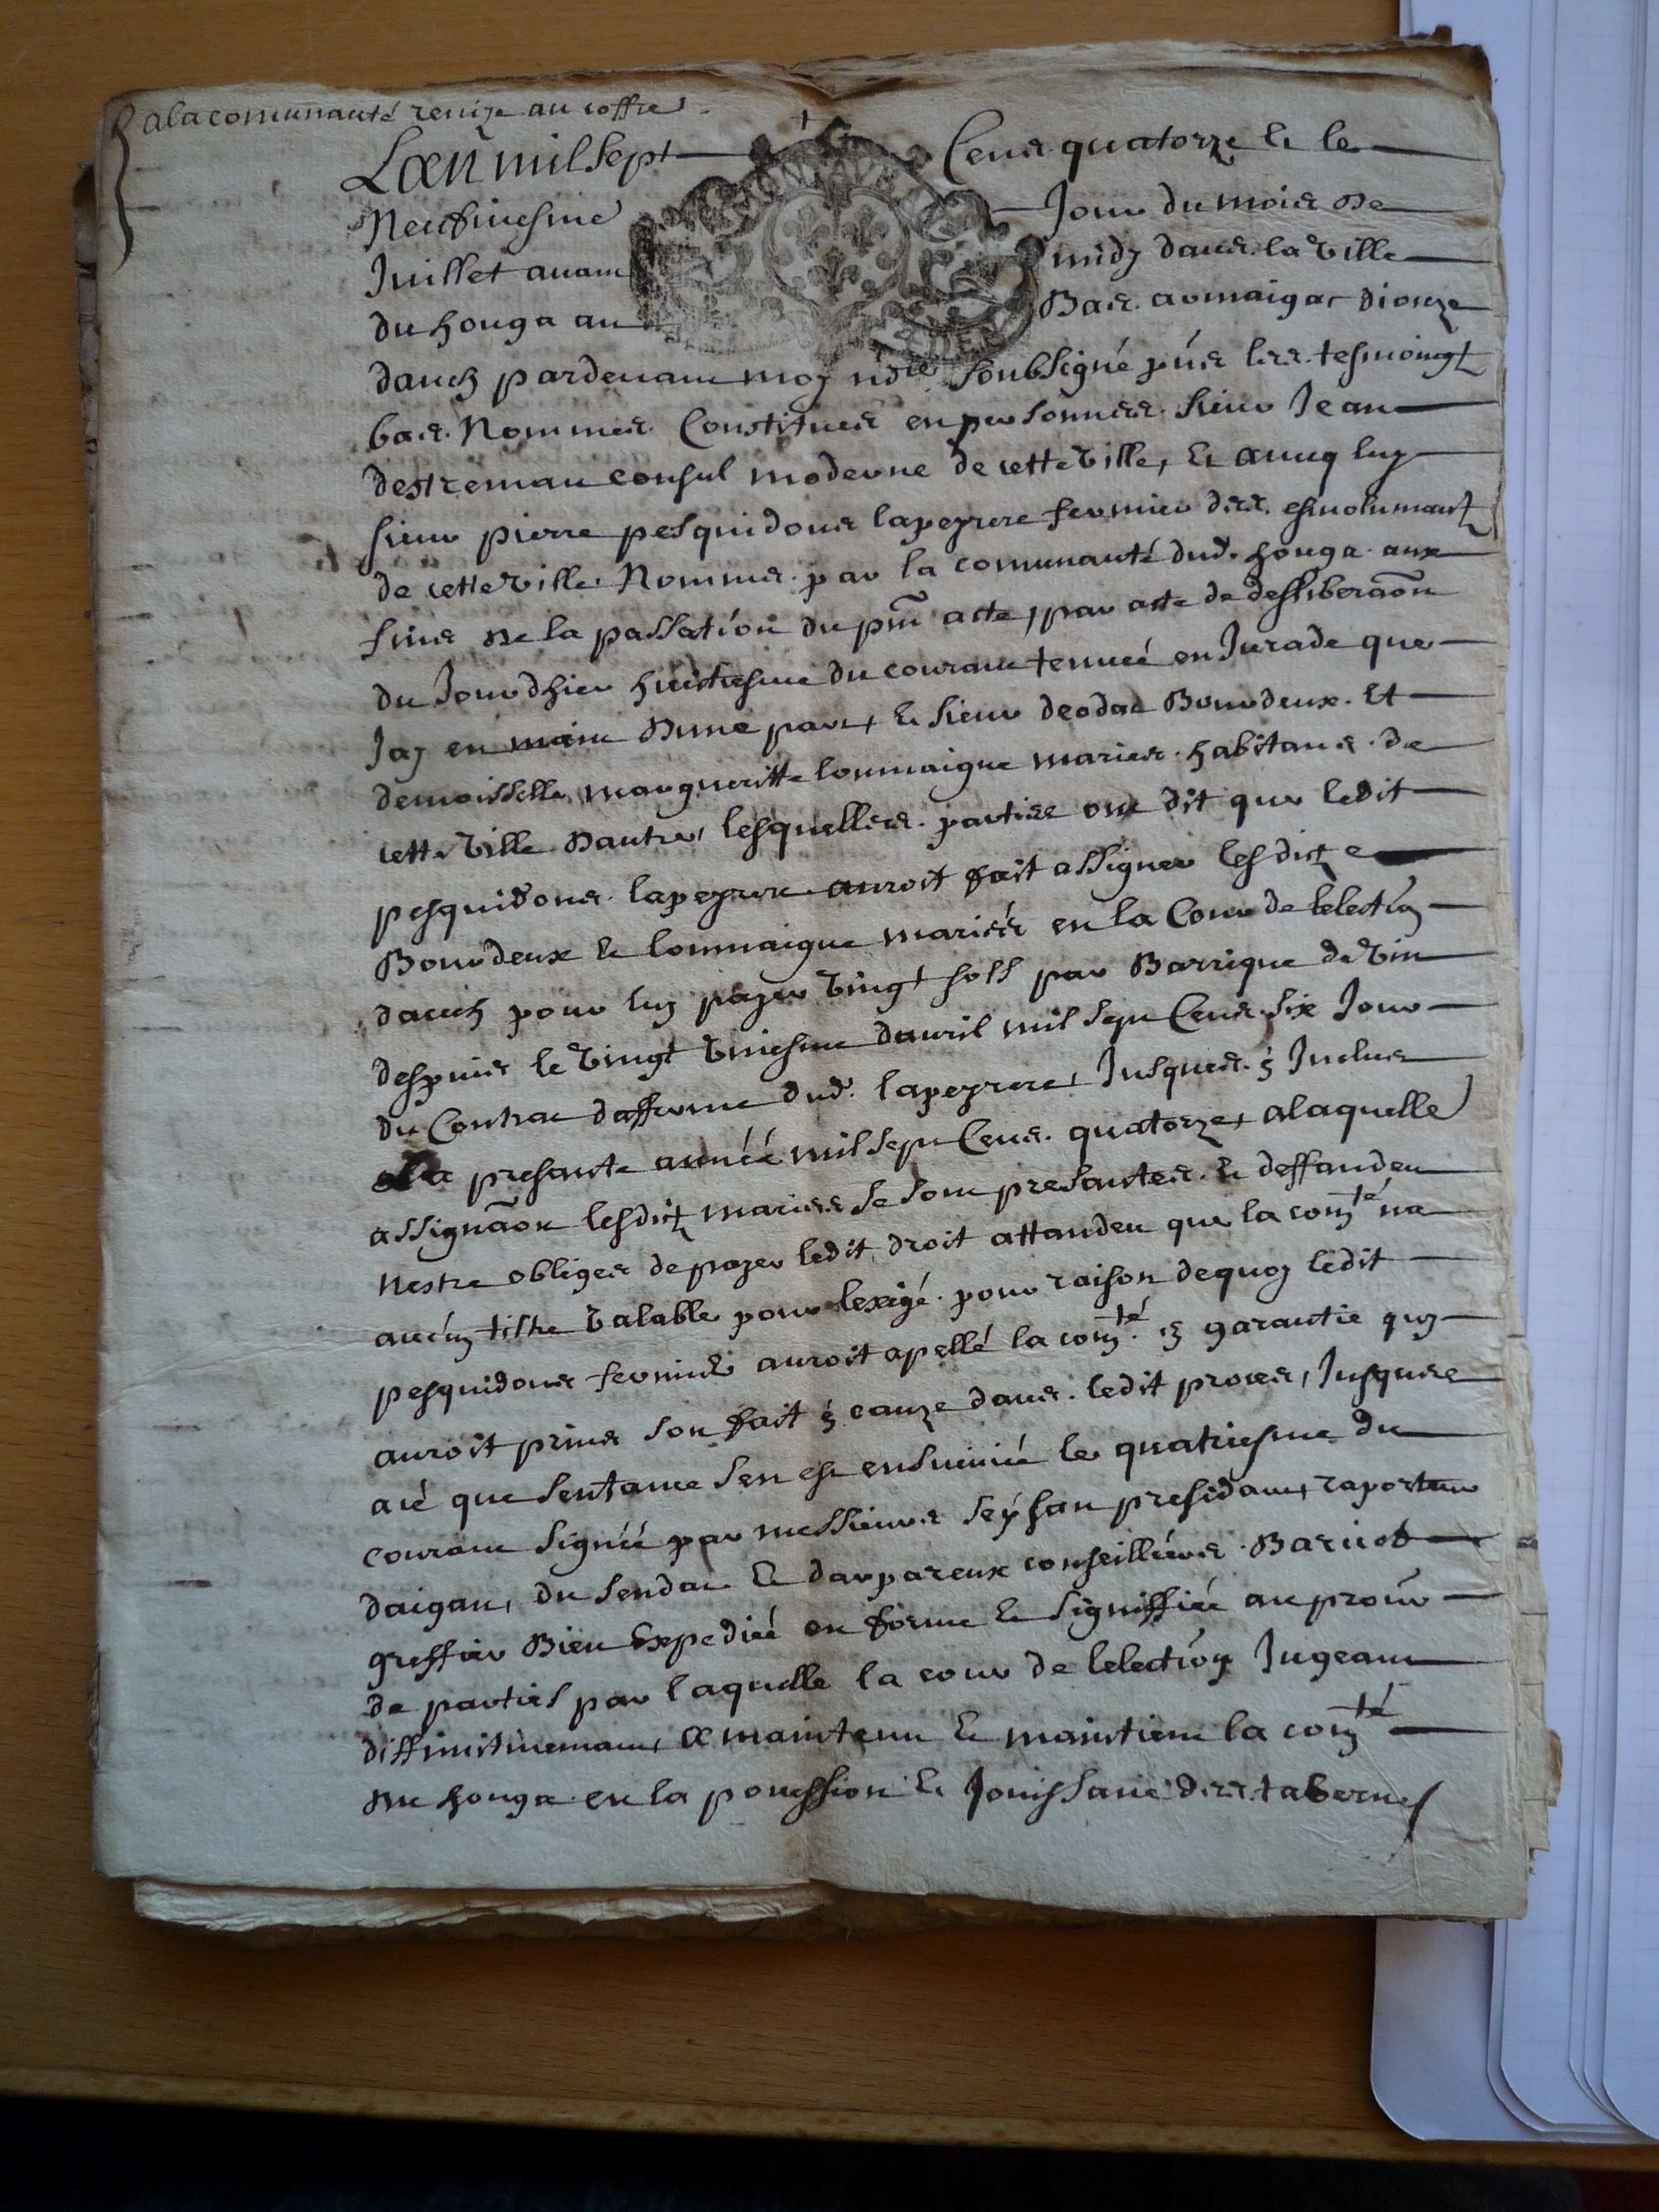 a la comunauté remize au coffre
Lan mil sept Cens quatorze & le
Neufviesme Jour du mois de
Juillet avant midy dans la ville
du houga au Bas armaignac dioceze
dauch pardevant moy nore soubsigné pñs les tesmoingt
bas Nommes Constitues en personnes sieur Jean
destremau consul moderne de cette ville, & avecq luy
sieur pierre pesquidous lapeyrere fermier des esmolumants
de cette ville Nommes par la comunauté dud. houga aux
fins de la passation du pnt acte, par acte de desliberaon
du Jour dhier huictiesme du courant tenueé en Jurade que
Jay en main dune part, & sieur deodat Bourdeux Et
demoisselle margueritte lonmaigne maries habitans de
cette ville dautre, lesquelles parties ont dit que ledit
pesquidous lapeyrere auroit fait assigner lesdits
Bourdeux & lonmaigne mariés en la Cour de lelection
dauch pour luy payer vingt sols par Barrique de vin
despuis le vingt uniesme davril mil sept Cens six Jour
du Contrat dafferme dud. lapeyrere, Jusques & Inclus
la presante anneé mil sept Cens quatorze, a laquelle
assignaon lesdits maries se sont presantes & deffanden
Nestre obliges de payer ledit droit attanden que la comté na
aucun tiltre valable pour lexigé pour raison dequoy ledit
pesquidous fermier auroit apellé la comté en garantie quy
auroit prins son fait & cauze dans ledit proces, Jusques
a cé que sentance sen est ensuivié le quatriesme du
courant signeé par messieurs seyssan presidant, raporteur
daigan, du sendat & darpareux conseilliers Baricot
greffier Bien Expedieé en forme & signiffieé au procur
de parties par laquelle la cour de lelection Jugeant
diffinitivemant, a maintenu & maintient la comté
du houga en la pocession & Jouissance des tabernes